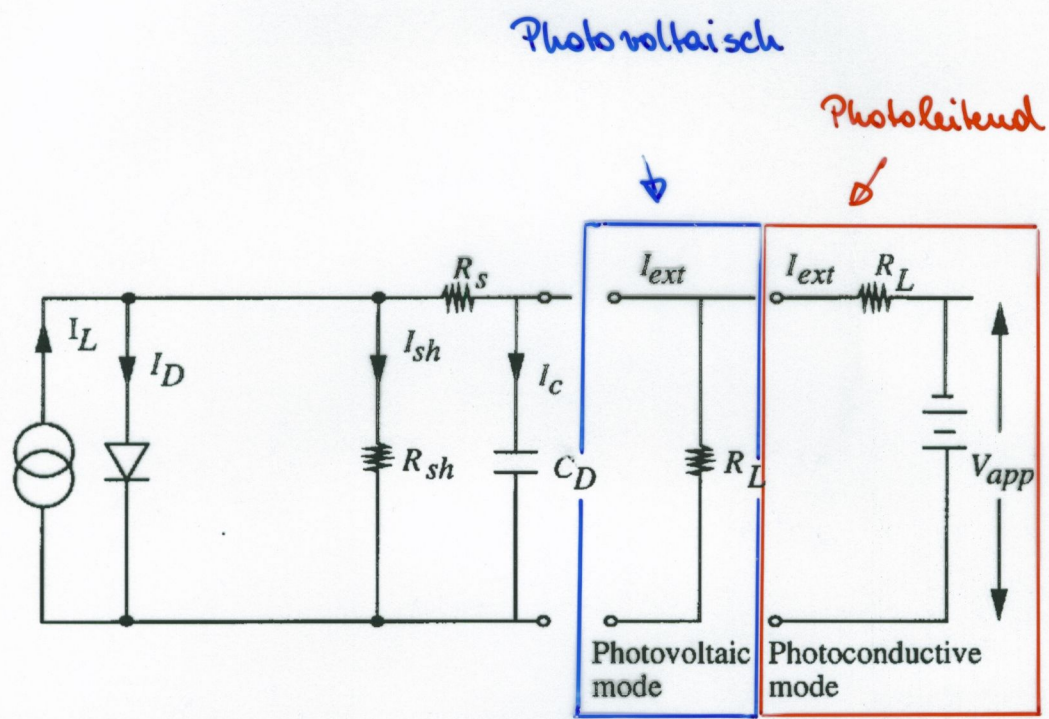 Photovoltaisch
Photoleitend
I_L
I_D
I_sh
R_sh
R_s
I_c
C_D
I_ext
R_L
I_ext
R_L
V_app
Photovoltaic
mode
Photoconductive
mode